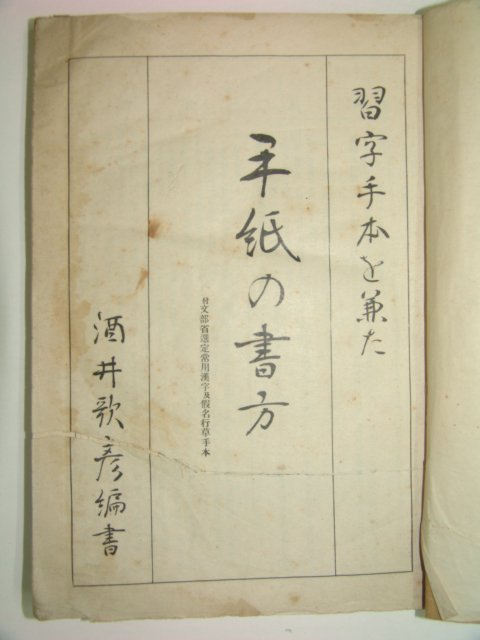 習字手本を兼た
手紙の書方
附文部省選定常用漢字及假名行草手本
酒井歌彦編書